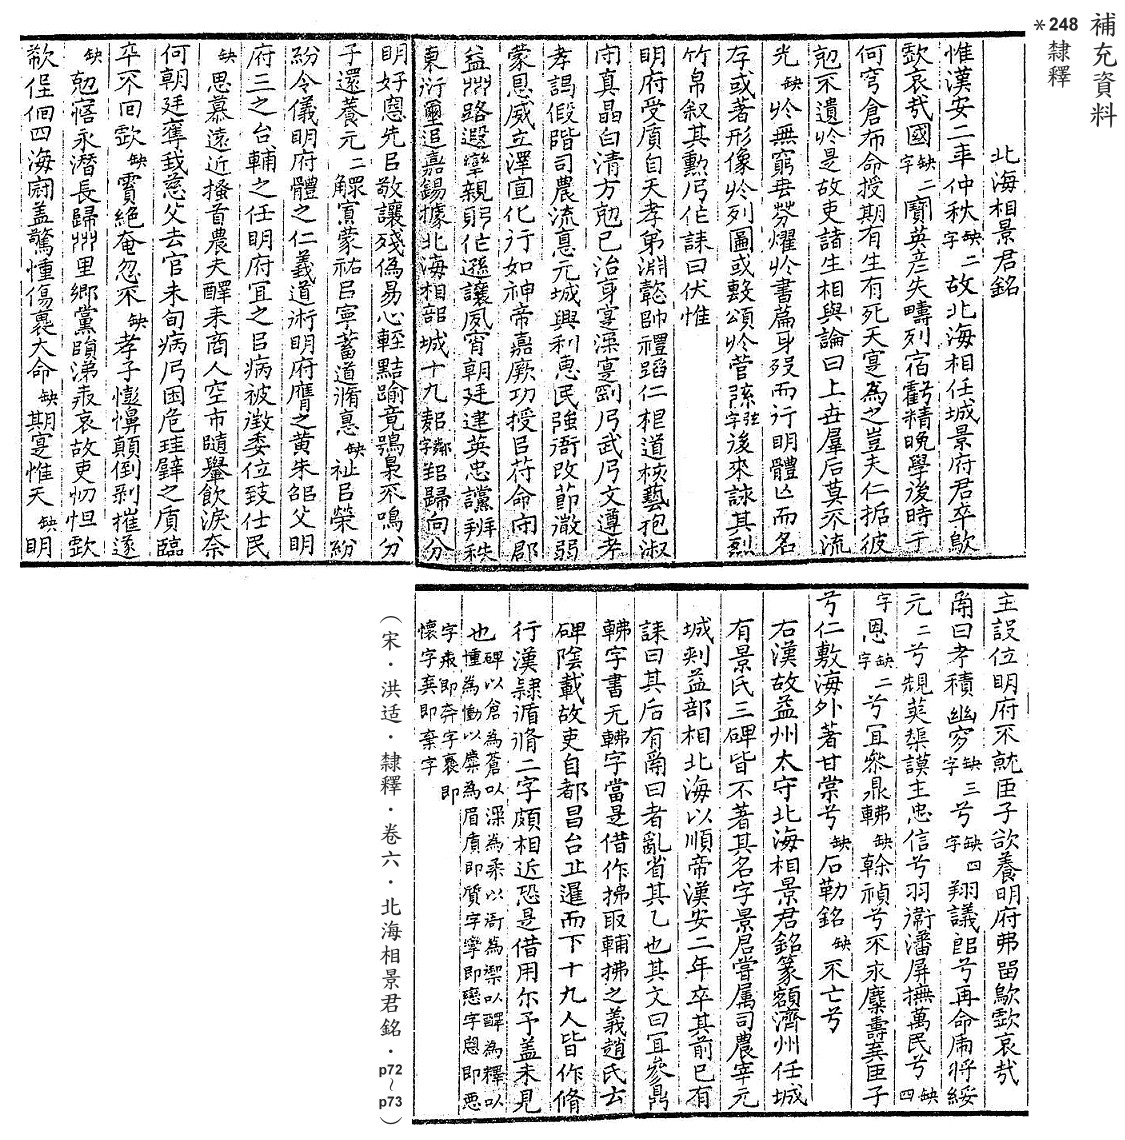 補充資料
*248 隸釋
北海相景君銘
惟漢安二年仲秋缺二字故北海相任城景府君卒歍
歎哀哉國缺二字寶英彦失疇列宿虧精晩學後時于
何穹倉布命授期有生有死天寔為之豈夫仁拓彼
克不遺於是故吏諸生相與論曰上世羣后莫不流
光缺於無窮垂芬燿於書篇身歿而行明體亡而名
存或著形像於列圖或數頌於管弦字後來詠其烈
竹帛叙其勲乃作誄曰伏惟
明府受質自天孝弟淵懿帥禮蹈仁根道核藝抱淑
守真晶白清方克己治身寔深寔剛乃武乃文遵孝
孝謁假階司農流惪元城興利惠民強衙改節微弱
蒙恩威立澤宣化行如神帝嘉厥功授㠯符命守郡
益州路遐攣親躬作遜讓夙宵朝廷建英忠讜辨秩
東衍璽追嘉錫據北海相部城十九鄰字邦歸向分
明好惡先㠯敬讓殘偽易心輕黠踰竟鴞梟不鳴分
子還養元二鰥寡蒙祐㠯寧蓄道脩惪缺祉㠯榮紛
紛令儀明府體之仁義道術明府膺之黄朱邵父明
府三之台輔之任明府宜之㠯病被徵委位致仕民
缺思慕遠近搔首農夫醳耒商人空市隨轝飲淚奈
何朝廷奪我慈父去官未旬病乃困危珪璧之質臨
卒不回歎缺賈絶奄忽不缺孝子憽懅顛倒剥摧遂
缺克寤永潜長歸州里鄉黨隕涕奔哀故吏忉怛歎
欷低佪四海冠蓋驚慟傷裹大命缺期寔惟天缺明
主設位明府不就臣子欲養明府弗留歍歎哀哉
亂曰孝積幽穸缺三字兮缺四字翔議郎兮再命虎將綏
元二兮規莢榘謨主忠信兮羽衛藩屏撫萬民兮缺四
字恩缺二字兮宜參鼎輔缺幹禎兮不永麋壽棄臣子
兮仁敷海外著甘棠兮缺石勒銘缺不亡兮
右漢故益州太守北海相景君銘篆額濟州任城
有景氏三碑皆不著其名字景君嘗属司農宰元
城剡益部相北海以順帝漢安二年卒其前已有
誄曰其后有亂曰者亂省其乙也其文曰宜參鼎
輔字書无輔字當是借作拂取輔拂之義趙氏云
碑陰載故吏自都昌台丘暹而下十九人皆作脩
行漢隸循脩二字頗相近恐是借用尔予蓋未見
也碑以倉為蒼以深為柔以衙為禦以醳為釋以
慟以麋為眉質即質字寧即戀字惪即惡
字奔即奔字裹即
懷字棄即棄字
（宋·洪适·隸釋·卷六·北海相景君銘·p72~p73）